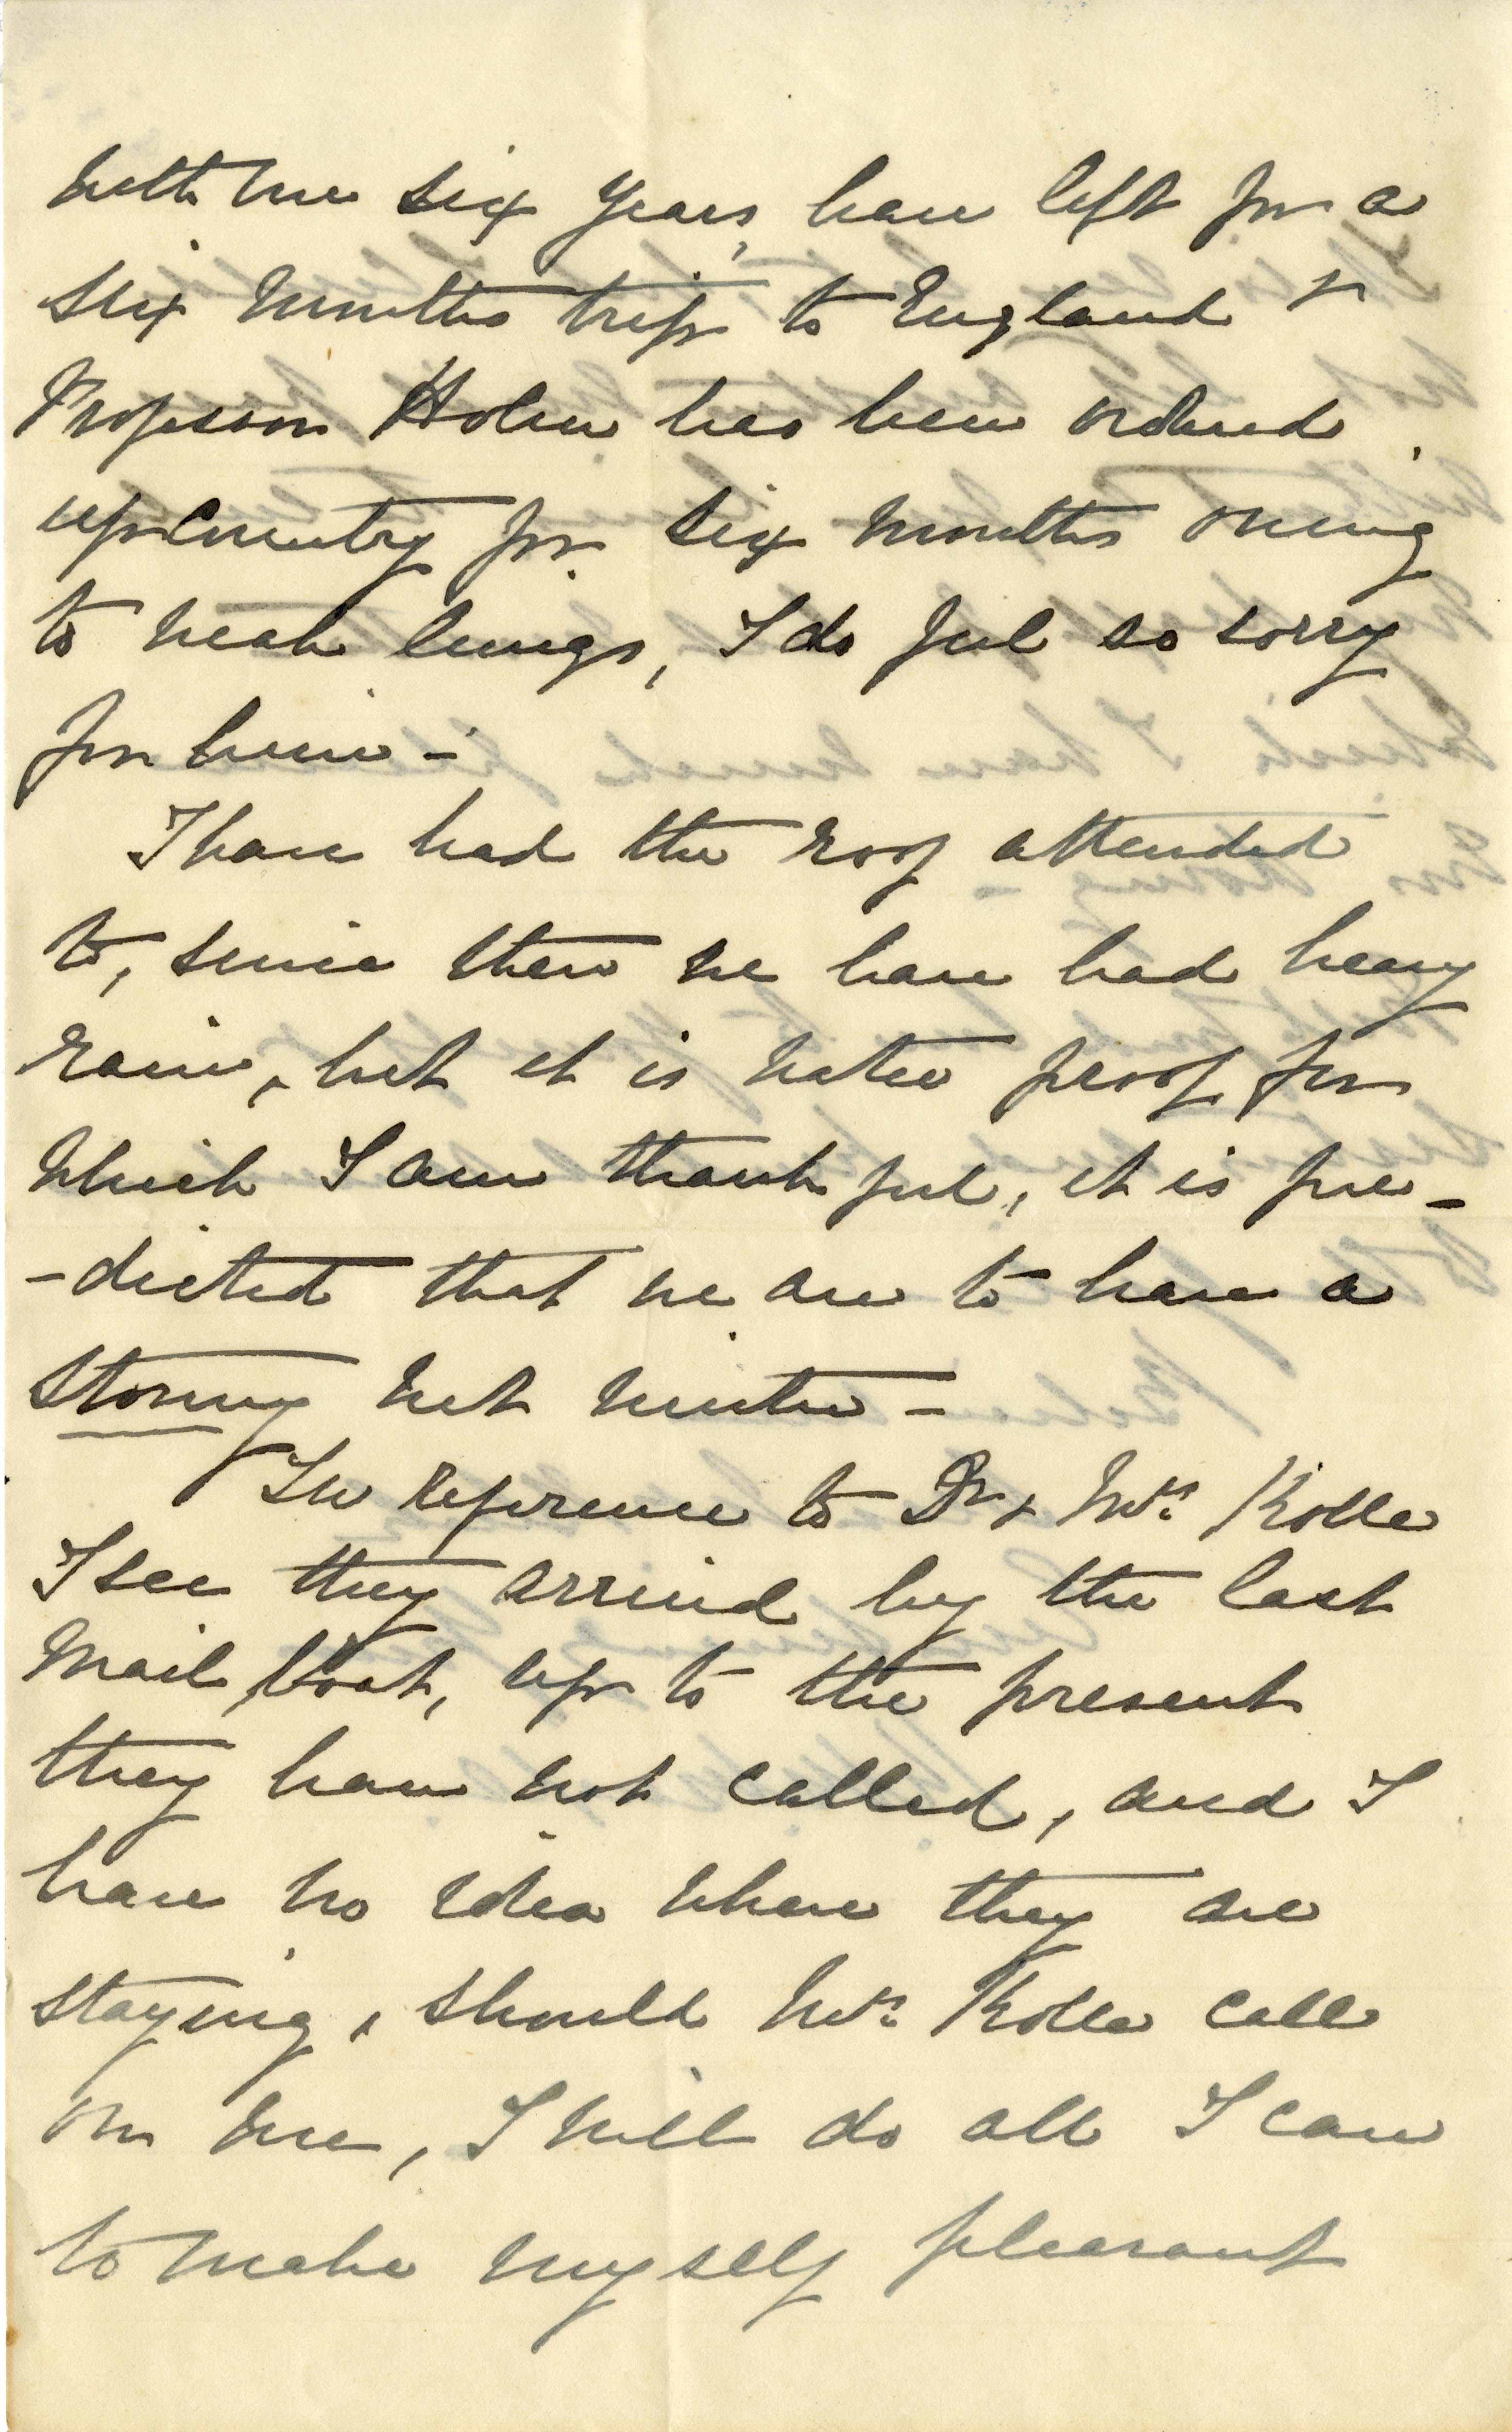 with me six years, have left for a
six months trip to England &
Professor Holm has been ordered
up country for six months owing
to weak lungs, I do feel so sorry
for him -
I have had the roof attended
to, since then we have had heavy
rain, but it is water proof for
which I am thankful, it is pre-
-dicted that we are to have a
stormy wet winter -
In reference to Dr & Mrs Kolle
I see they arrived by the last
Mail Boat, up to the present
they have not called, and I
have no idea where they are
staying, should Mrs Kolle call
on me, I will do all I can
to make myself pleasant